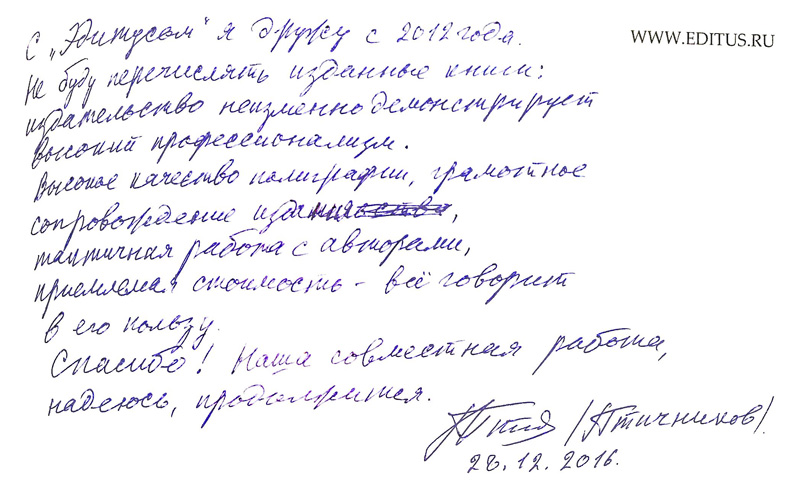 С „Эдитусом" я дружу с 2012 года.
WWW.EDITUS.RU
Не буду перечислять изданные книги:
издательство неизменно демонстрирует
высокий профессионализм.
Высокое качество полиграфии, грамотное
сопровождение издания,
тактичная работа с авторами,
приемлемая стоимость - всё говорит
в его пользу.
Спасибо! Наша совместная работа,
надеюсь, продолжится.
/Птичников/.
28.12.2016.